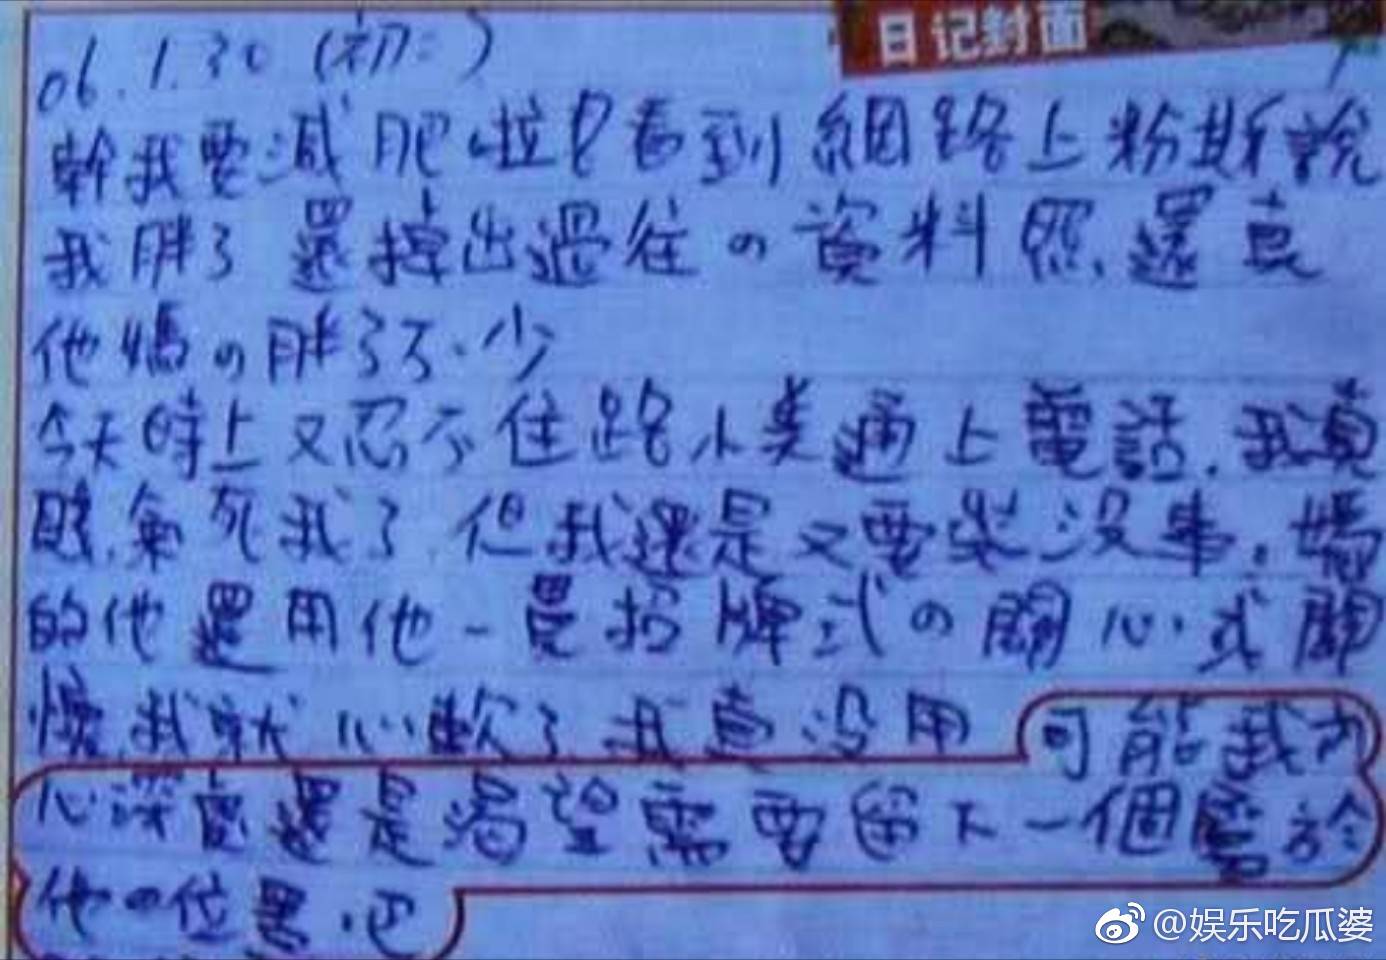 日记封面
06.1.30（初二）
幹我要減肥啦！看到網路上粉斯說
我胖了還掉出過往の資料照、還真
他媽の胖了不少
今天晚上又忍不住跟小美通上電話，我真
氣死我了，但我還是又要裝沒事。媽
的他還用他一貫招牌式の關心式關
懷，我就心軟了我真沒用 可能我內
心深處還是渴望需要留下一個屬於
他の位置吧
@娱乐吃瓜婆